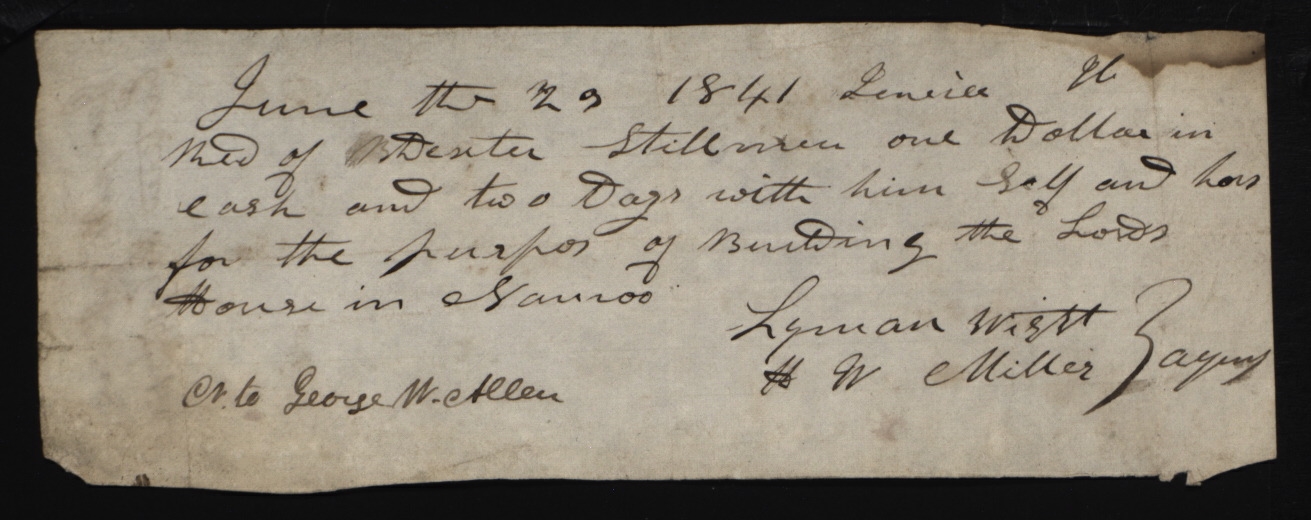 June the 23 1841
Recd of Dexter Stillman one Dollar in
cash and two Days with him Self and hors
for the purpos of Building the Lords
House in Nauvoo
Lyman Wight
H W Miller } agents
Cr. to George W. Allen